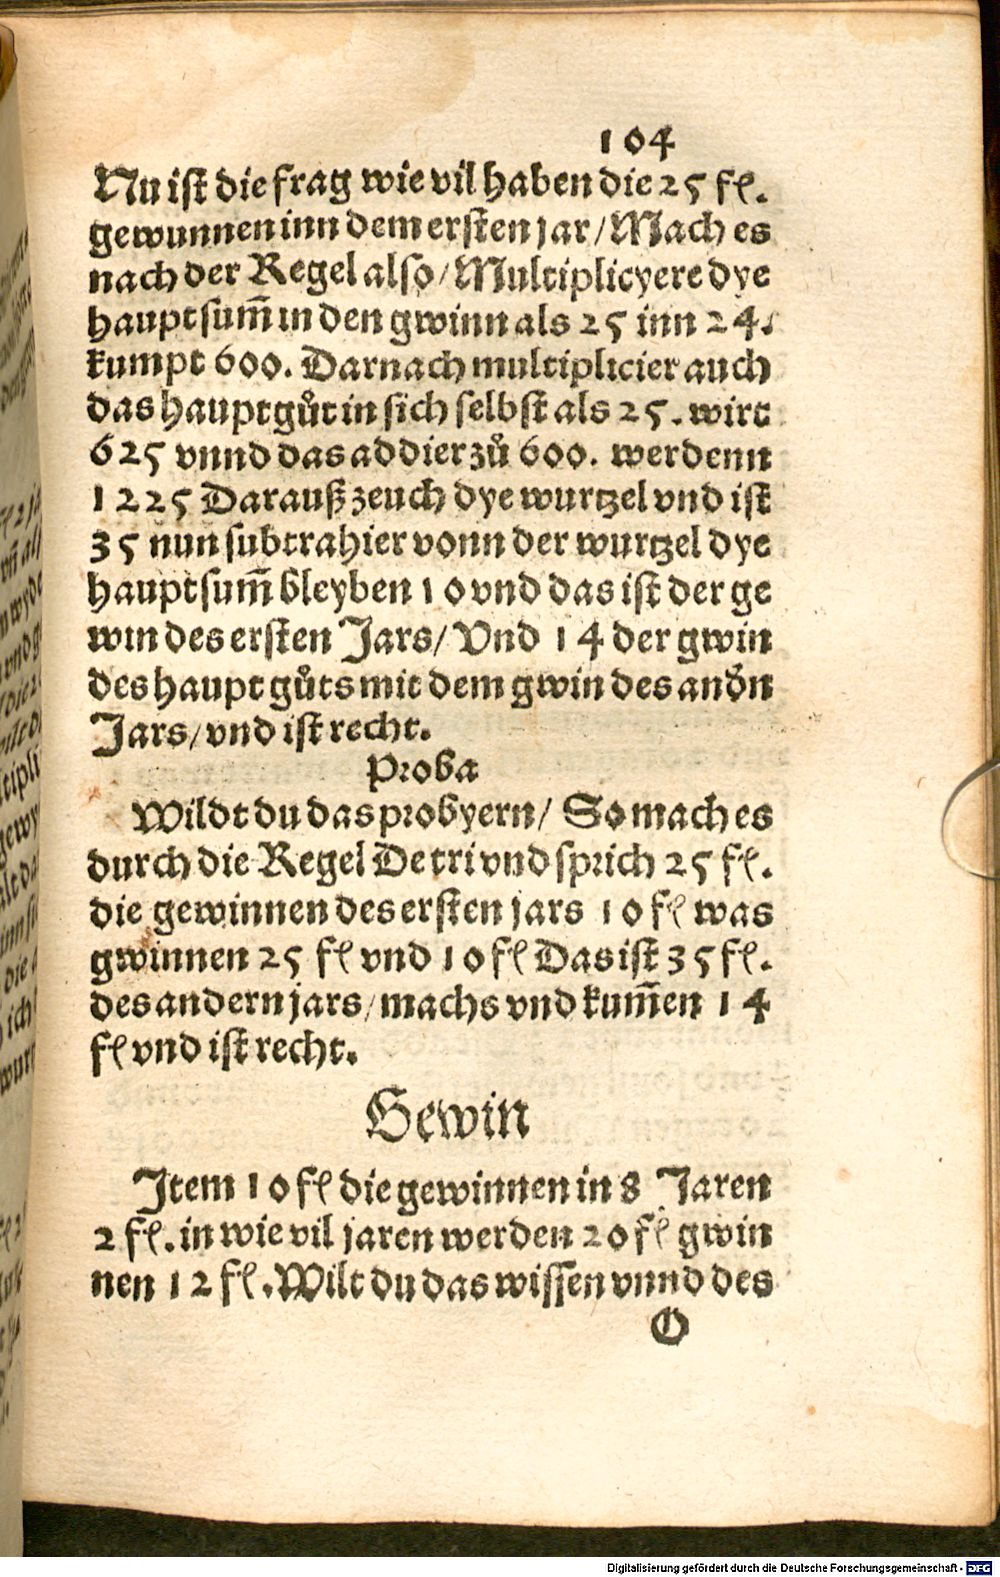 104
Nu ist die frag wie vil haben die 25 fl.
gewunnen inn dem ersten jar / Mach es
nach der Regel also / Multiplicyere dye
hauptsum̄ in den gwinn als 25 inn 24.
kumpt 600. Darnach multiplicier auch
das hauptgůt in sich selbst als 25. wirt
625 vnnd das addier zů 600. werdenn
1225 Darauß zeuch dye wurtzel vnd ist
35 nun subtrahier vonn der wurtzel dye
hauptsum̄ bleyben 10 vnd das ist der ge
win des ersten Jars / Vnd 14 der gwin
des hauptgůts mit dem gwin des andn
Jars / vnd ist recht.
Proba
Wildt du das probyern / So mach es
durch die Regel Detri vnd sprich 25 fl.
die gewinnen des ersten jars 10 fl was
gwinnen 25 fl vnd 10 fl Das ist 35 fl.
des andern jars / machs vnd kum̄en 14
fl vnd ist recht.
Gewin
Item 10 fl die gewinnen in 8 Jaren
2 fl. in wie vil jaren werden 20 fl gwin
nen 12 fl. Wilt du das wissen vnnd des
O
Digitalisierung gefördert durch die Deutsche Forschungsgemeinschaft - DFG